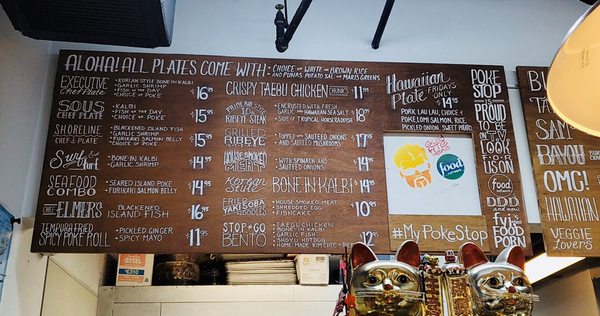 ALOHA! ALL PLATES COME WITH: • CHOICE OF WHITE OR BROWN RICE
AND PUNA'S POTATO SAL. OR MARI'S GREENS
EXECUTIVE
Chef Plate
• KOREAN STYLE BONE IN KALBI
• GARLIC SHRIMP
• FISH OF THE DAY
• CHOICE OF POKE
$16.95
SOUS
CHEF PLATE
• KALBI
• FISH OF THE DAY
• CHOICE OF POKE
$15.95
SHORELINE
CHEF'S PLATE
• BLACKENED ISLAND FISH
• GARLIC SHRIMP
• FURIKAKI SALMON BELLY
CHOICE OF POKE
$15.95
Surf & turf
• BONE IN KALBI
• GARLIC SHRIMP
$14.95
SEAFOOD
COMBO
• SEARED ISLAND POKE
• FURIKAKI SALMON BELLY
$14.95
ELMER'S
BLACKENED
ISLAND FISH
$16
TEMPURA FRIED
SPICY POKE ROLL
• PICKLED GINGER
• SPICY MAYO
$11.95
CRISPY TAEGU CHICKEN CHUNKS
$11.95
RIBEYE STEAK
• ENCRUSTED WITH FRESH
GARLIC AND HAWAIIAN SEA SALT
• SIDE OF TROPICAL HORSE RADISH
$18
GRILLED
RIBEYE
• TOPPED WITH SAUTEED ONIONS
AND SAUTEED MUSHROOMS
$17
HOUSE SMOKED
MEAT
• WITH SPINACH AND
SAUTEED ONIONS
$14
BONE IN KALBI
$14
FRIED SOBA
NOODLES
• HOUSE SMOKED MEAT
• SHREDDED EGG
• FISHCAKE
$10
STOP & GO
BENTO
• TAEGU CHICKEN
• GARLIC FISH
• SHOYU HOTDOG
• HOME MADE KIMCHEE
$12
Hawaiian
Plate
FRIDAYS
ONLY
$14.95
PORK LAU LAU, CHOICE OF
POKE, LOMI SALMON, RICE,
PICKLED ONION, SWEET POTATO
food
#MyPokeStop
POKE
STOP
IS
PROUD
TO BE
ON
LOOK
FOR
US ON
food
network
DDD
AND
TV'S
FOOD
PORN
BAYOU
OMG!
HAWAIIAN
VEGGIE
Lovers